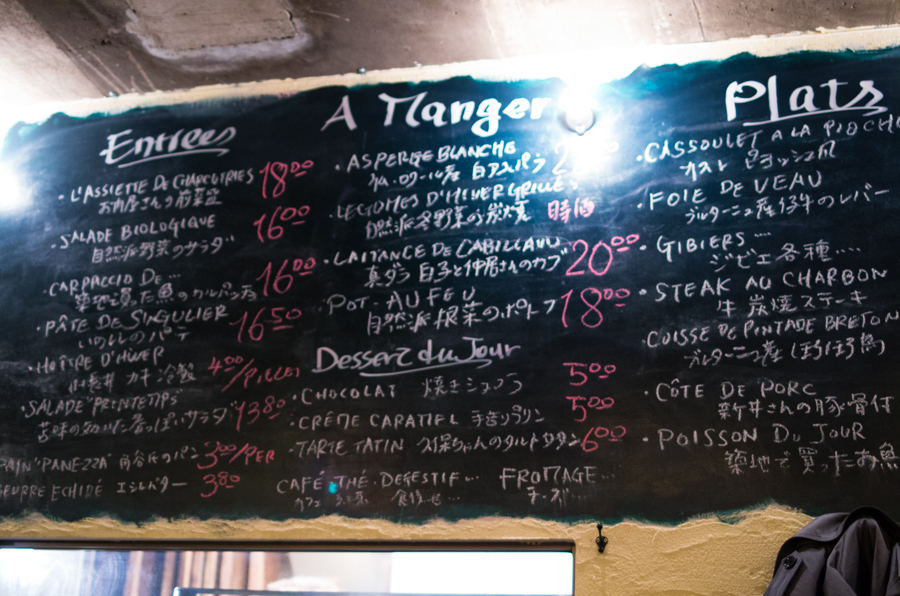 Entrees
· L'ASSIETTE DE CHARCUTRIES 18⁰⁰
お肉屋さんの前菜盛
· SALADE BIOLOGIQUE 16⁰⁰
自然派野菜のサラダ
· CARPACCIO DE ... 16⁰⁰
築地で買った魚のカルパッチョ
· PÂTE DE SINGULIER 16⁵⁰
いわしのパテ
· HUÎTRE D'HIVER 4⁰⁰/PIECES
カキ 冷製
· SALADE "PRINTEMPS" 13⁸⁰
苦味の効いた葉っぱいサラダ
PAIN "PANEZZA" 角谷氏のパン 3⁰⁰/PER
BEURRE ECHIDÉ エシレバター 3⁸⁰
A Manger
· ASPERGE BLANCHE
白アスパラ
· LEGUMES D'HIVER GRILLES 時価
自然派冬野菜の炭焼
· LAITANCE DE CABILLAUD 20⁰⁰
真ダラ 白子と仲居さんのカブ
· POT-AU FEU 18⁰⁰
自然派根菜のポトフ
Dessert du Jour
· CHOCOLAT 焼きショコラ 5⁰⁰
· CRÉME CARAMEL 手造りプリン 5⁰⁰
· TARTE TATIN ちゃんのタルトタタン 6⁰⁰
CAFÉ · THÉ · DEGESTIF ... FROMAGE ...
カフェ お茶 食後酒 ... チーズ ...
Plats
· CASSOULET A LA PIOCHE
カスレ ピヨッシュ風
· FOIE DE VEAU
ブルターニュ産仔牛のレバー
· GIBIERS ...
ジビエ各種 ....
· STEAK AU CHARBON
牛 炭焼ステーキ
· CUISSE DE PINTADE BRETON
ブルターニュ産 ほろほろ鳥
· CÔTE DE PORC
新井さんの豚骨付
· POISSON DU JOUR
築地で買ったお魚